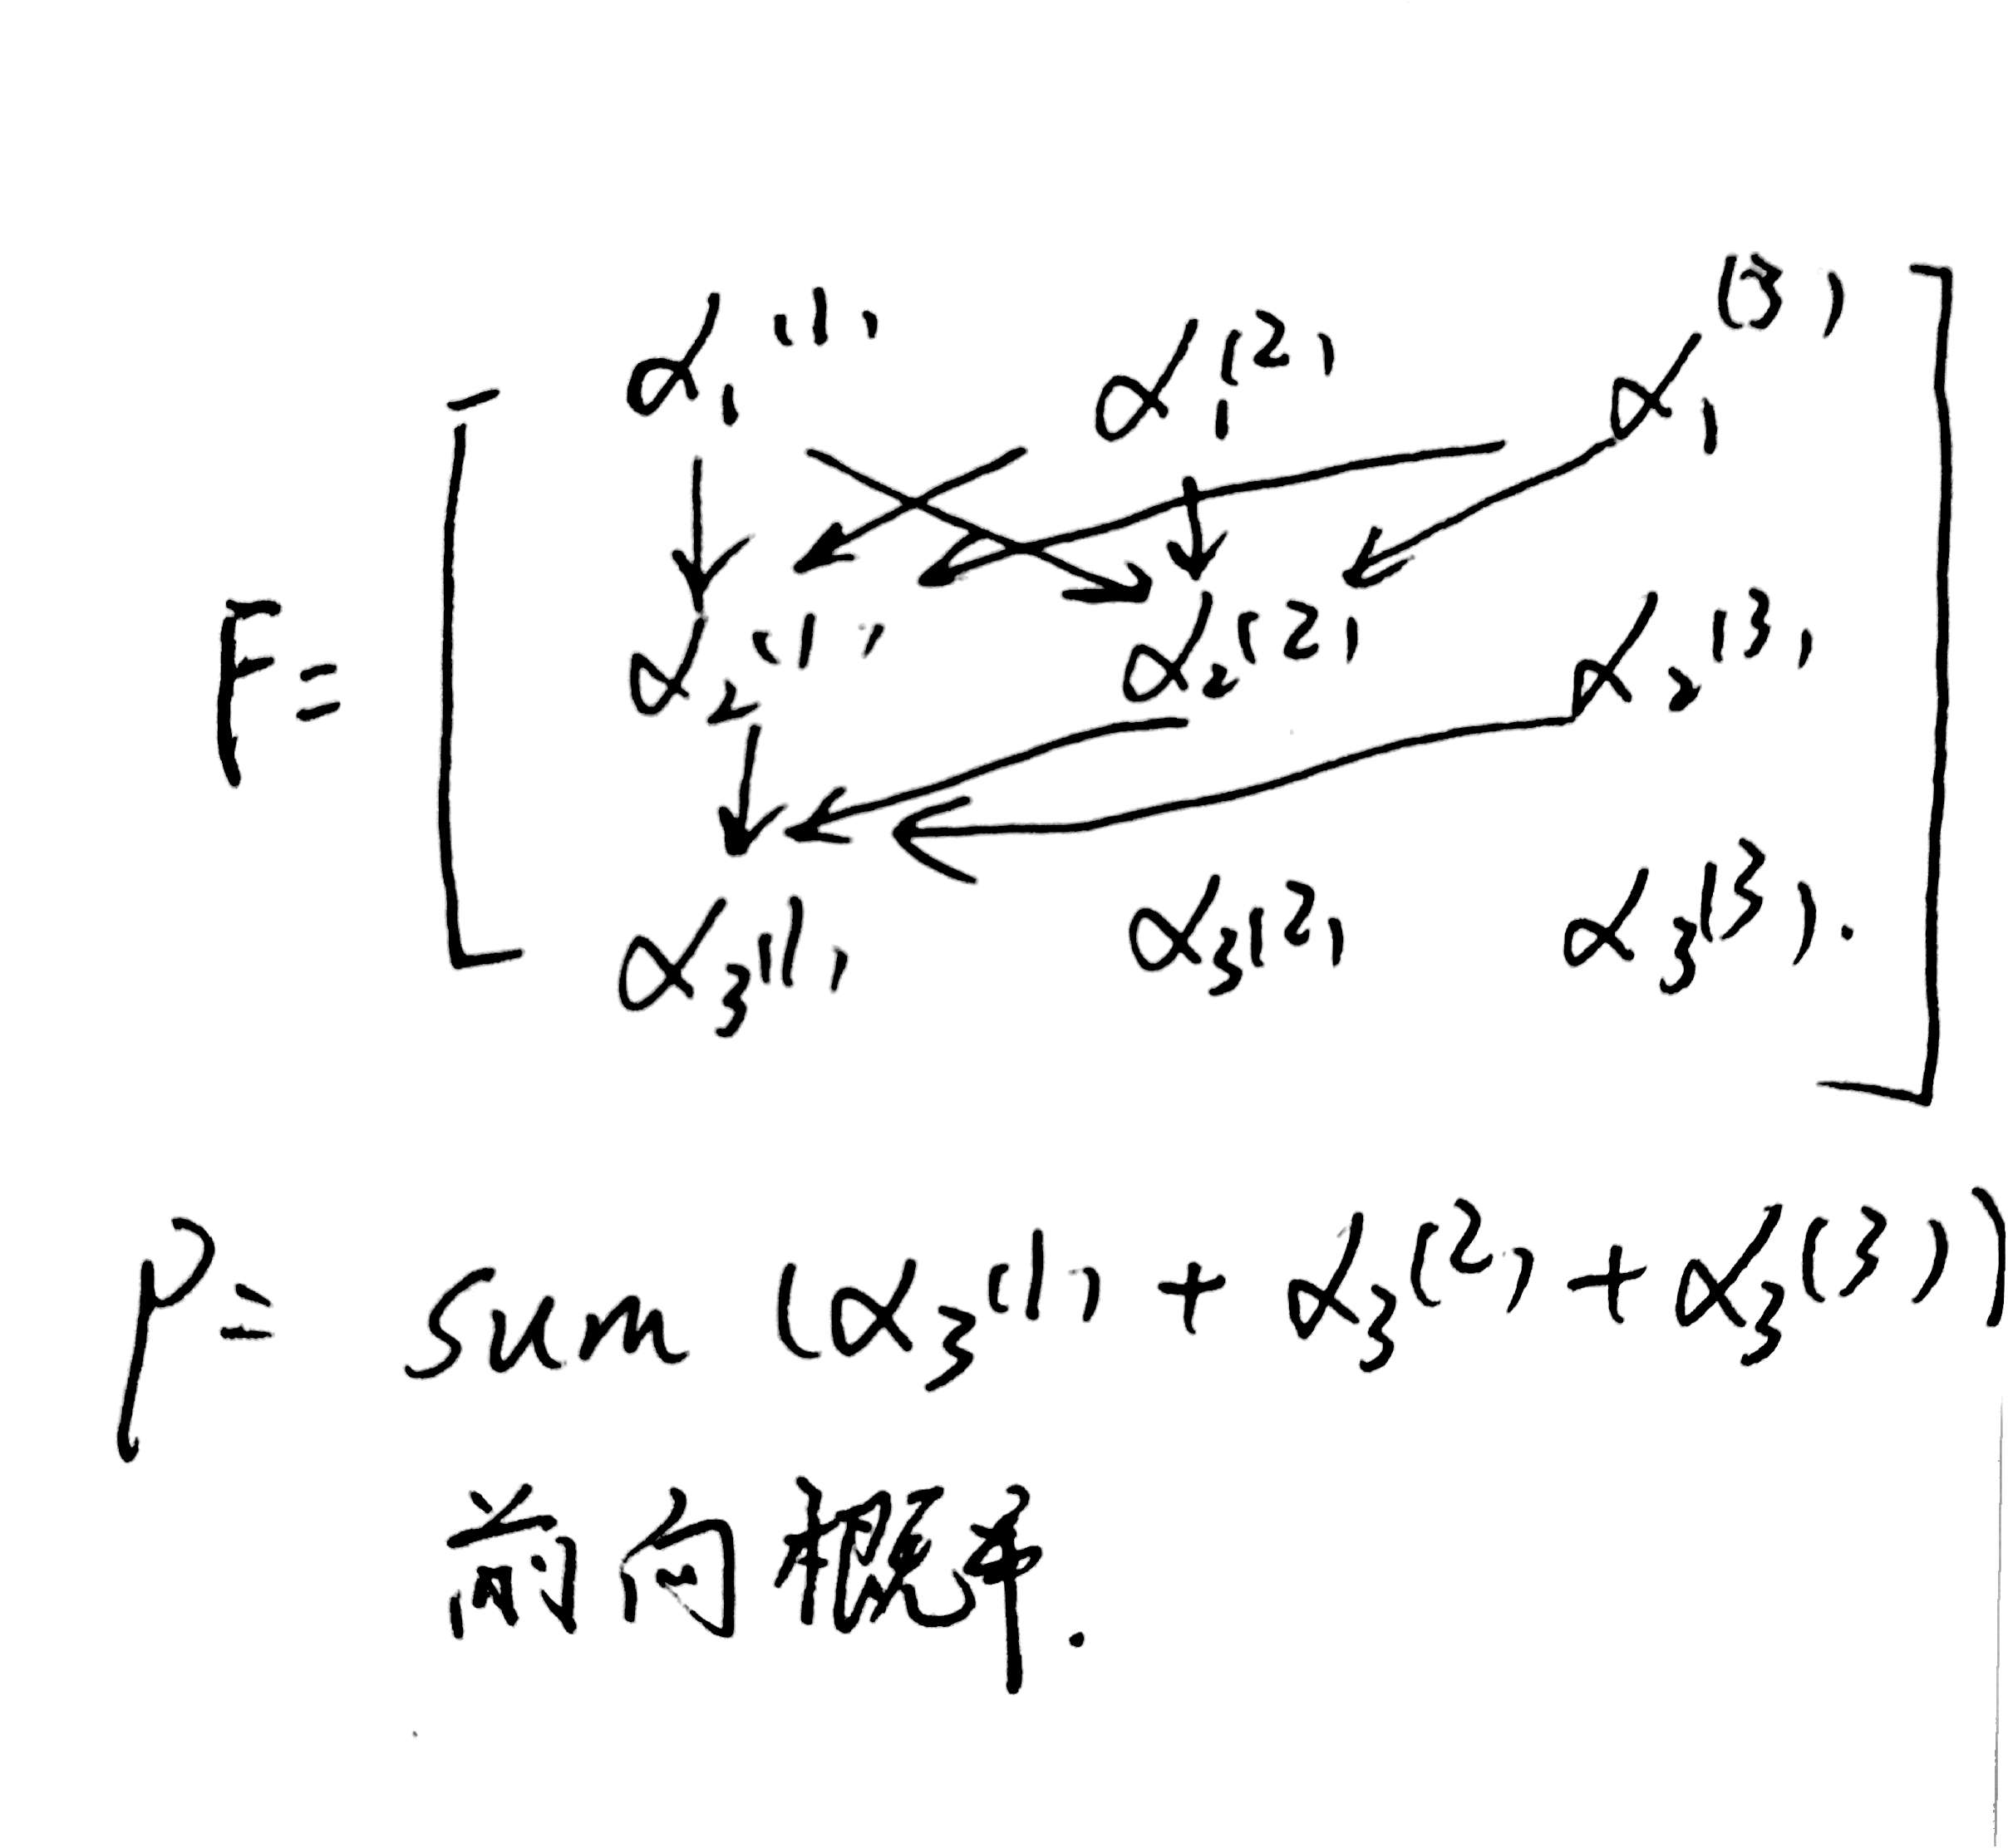 α₁(1) α₁(2) α₁(3)
F= α₂(1) α₂(2) α₂(3)
α₃(1) α₃(2) α₃(3).
P= sum (α₃(1) + α₃(2) + α₃(3))
前向概率.